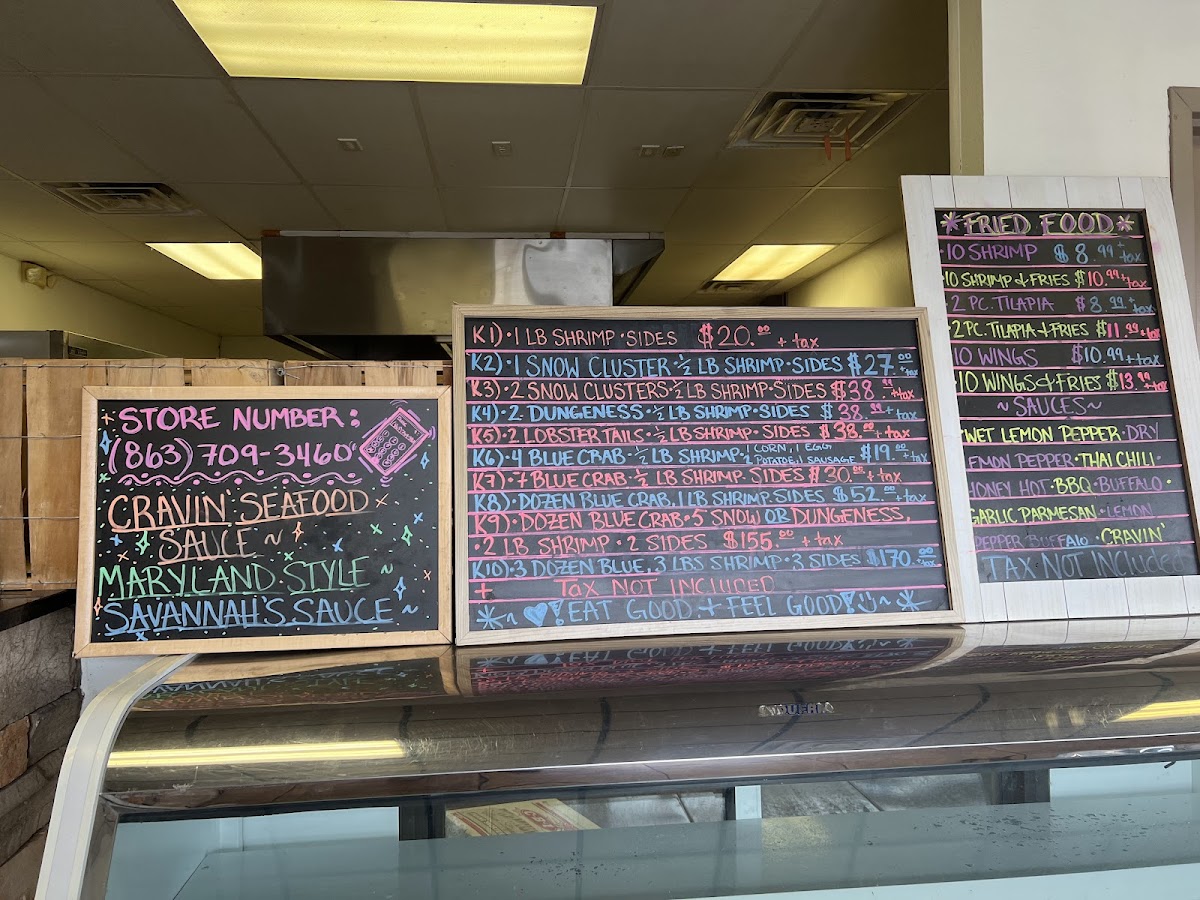 STORE NUMBER:
(863) 709-3460
CRAVIN' SEAFOOD
SAUCE ~
MARYLAND STYLE ~
SAVANNAH'S SAUCE ~
K1)·1 LB SHRIMP·SIDES $20.00 + tax
K2)·1 SNOW CLUSTER·½ LB SHRIMP·SIDES $27.00 + tax
K3)·2 SNOW CLUSTERS·½ LB SHRIMP·SIDES $38.99 + tax
K4)·2 DUNGENESS·½ LB SHRIMP·SIDES $38.99 + tax
K5)·2 LOBSTER TAILS·½ LB SHRIMP·SIDES $38.00 + tax
K6)·4 BLUE CRAB·½ LB SHRIMP·2 CORN, 1 EGG POTATOE, 1 SAUSAGE $19.00 + tax
K7)·7 BLUE CRAB·½ LB SHRIMP·SIDES $30.00 + tax
K8)·DOZEN BLUE CRAB, 1 LB SHRIMP·SIDES $52.00 + tax
K9)·DOZEN BLUE CRAB·5 SNOW OR DUNGENESS,
·2 LB SHRIMP·2 SIDES $155.00 + tax
K10)·3 DOZEN BLUE, 3 LBS SHRIMP·3 SIDES $170.00 + tax
+ TAX NOT INCLUDED
*~♥! EAT GOOD + FEEL GOOD! ~*
*FRIED FOOD*
·10 SHRIMP $8.99 + tax
·10 SHRIMP & FRIES $10.99 + tax
·2 PC. TILAPIA $8.99 + tax
·2 PC. TILAPIA + FRIES $11.99 + tax
·10 WINGS $10.99 + tax
·10 WINGS & FRIES $13.99 + tax
~SAUCES~
·WET LEMON PEPPER·DRY
LEMON PEPPER·THAI CHILI·
HONEY HOT·BBQ·BUFFALO·
GARLIC PARMESAN·LEMON
PEPPER BUFFALO·CRAVIN'
TAX NOT INCLUDED